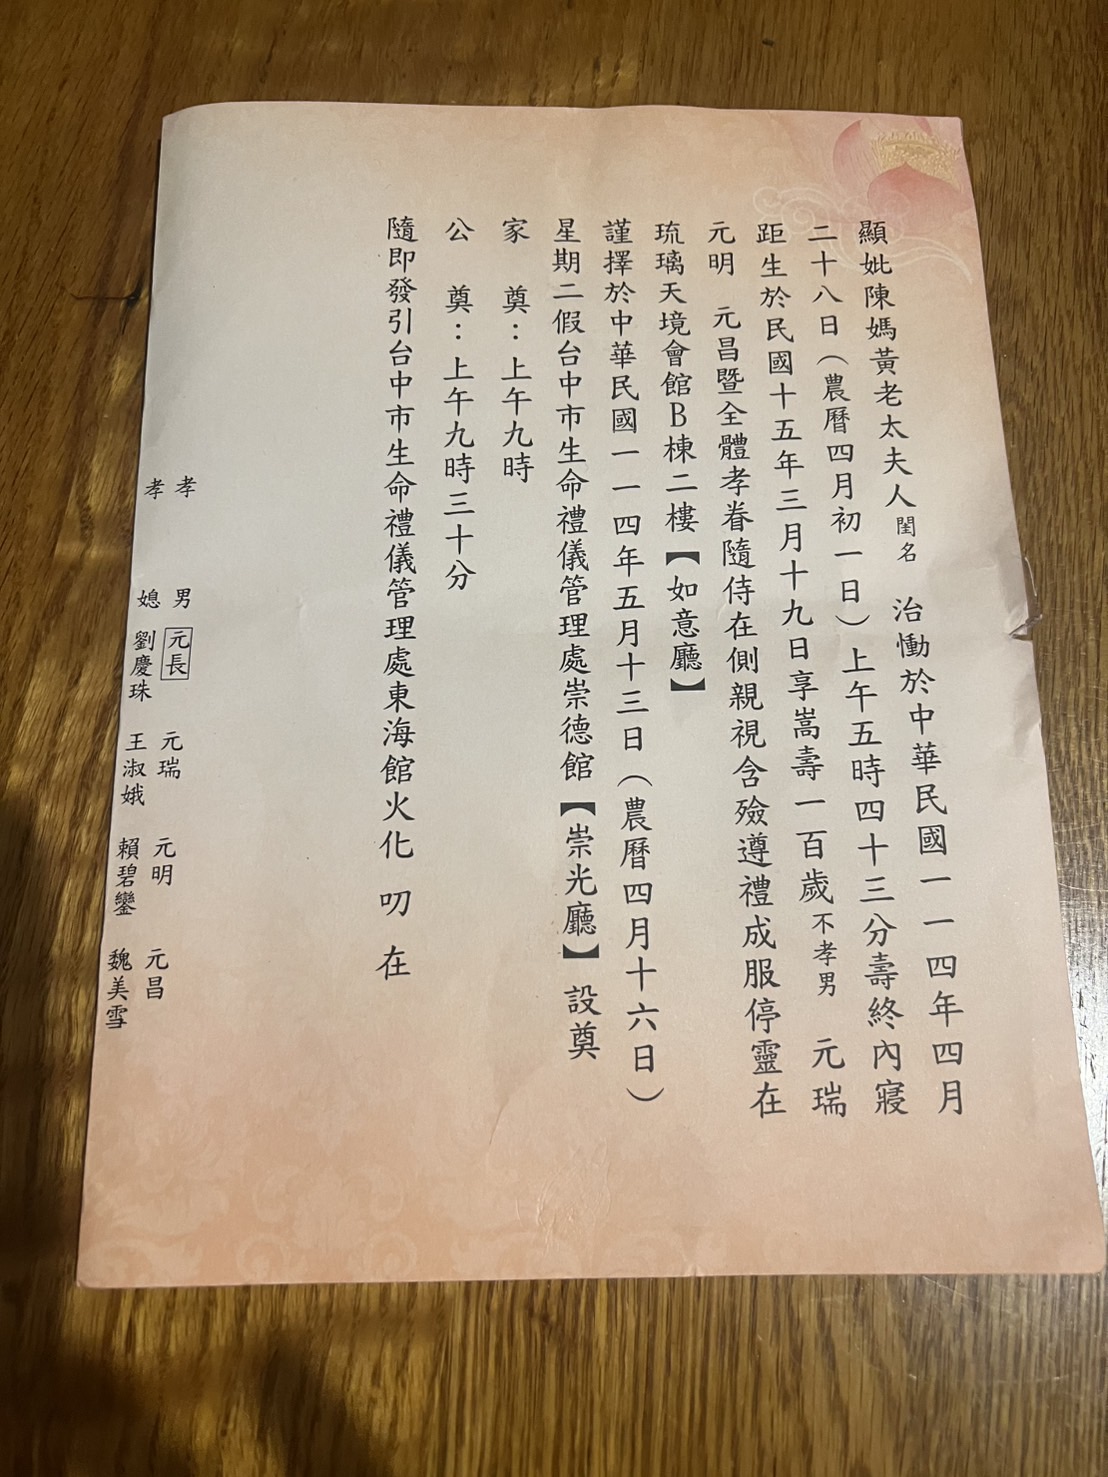 顯妣陳媽黃老太夫人閨名 治慟於中華民國一一四年四月
二十八日（農曆四月初一日）上午五時四十三分壽終內寢
距生於民國十五年三月十九日享嵩壽一百歲不孝男 元瑞
元明 元昌暨全體孝眷隨侍在側親視含殮遵禮成服停靈在
琉璃天境會館B棟二樓【如意廳】
謹擇於中華民國一一四年五月十三日（農曆四月十六日）
星期二假台中市生命禮儀管理處崇德館【崇光廳】設奠
家 奠：上午九時
公 奠：上午九時三十分
隨即發引台中市生命禮儀管理處東海館火化 叨 在
孝 男 元長 元瑞 元明 元昌
孝 媳 劉慶珠 王淑娥 賴碧鑾 魏美雪